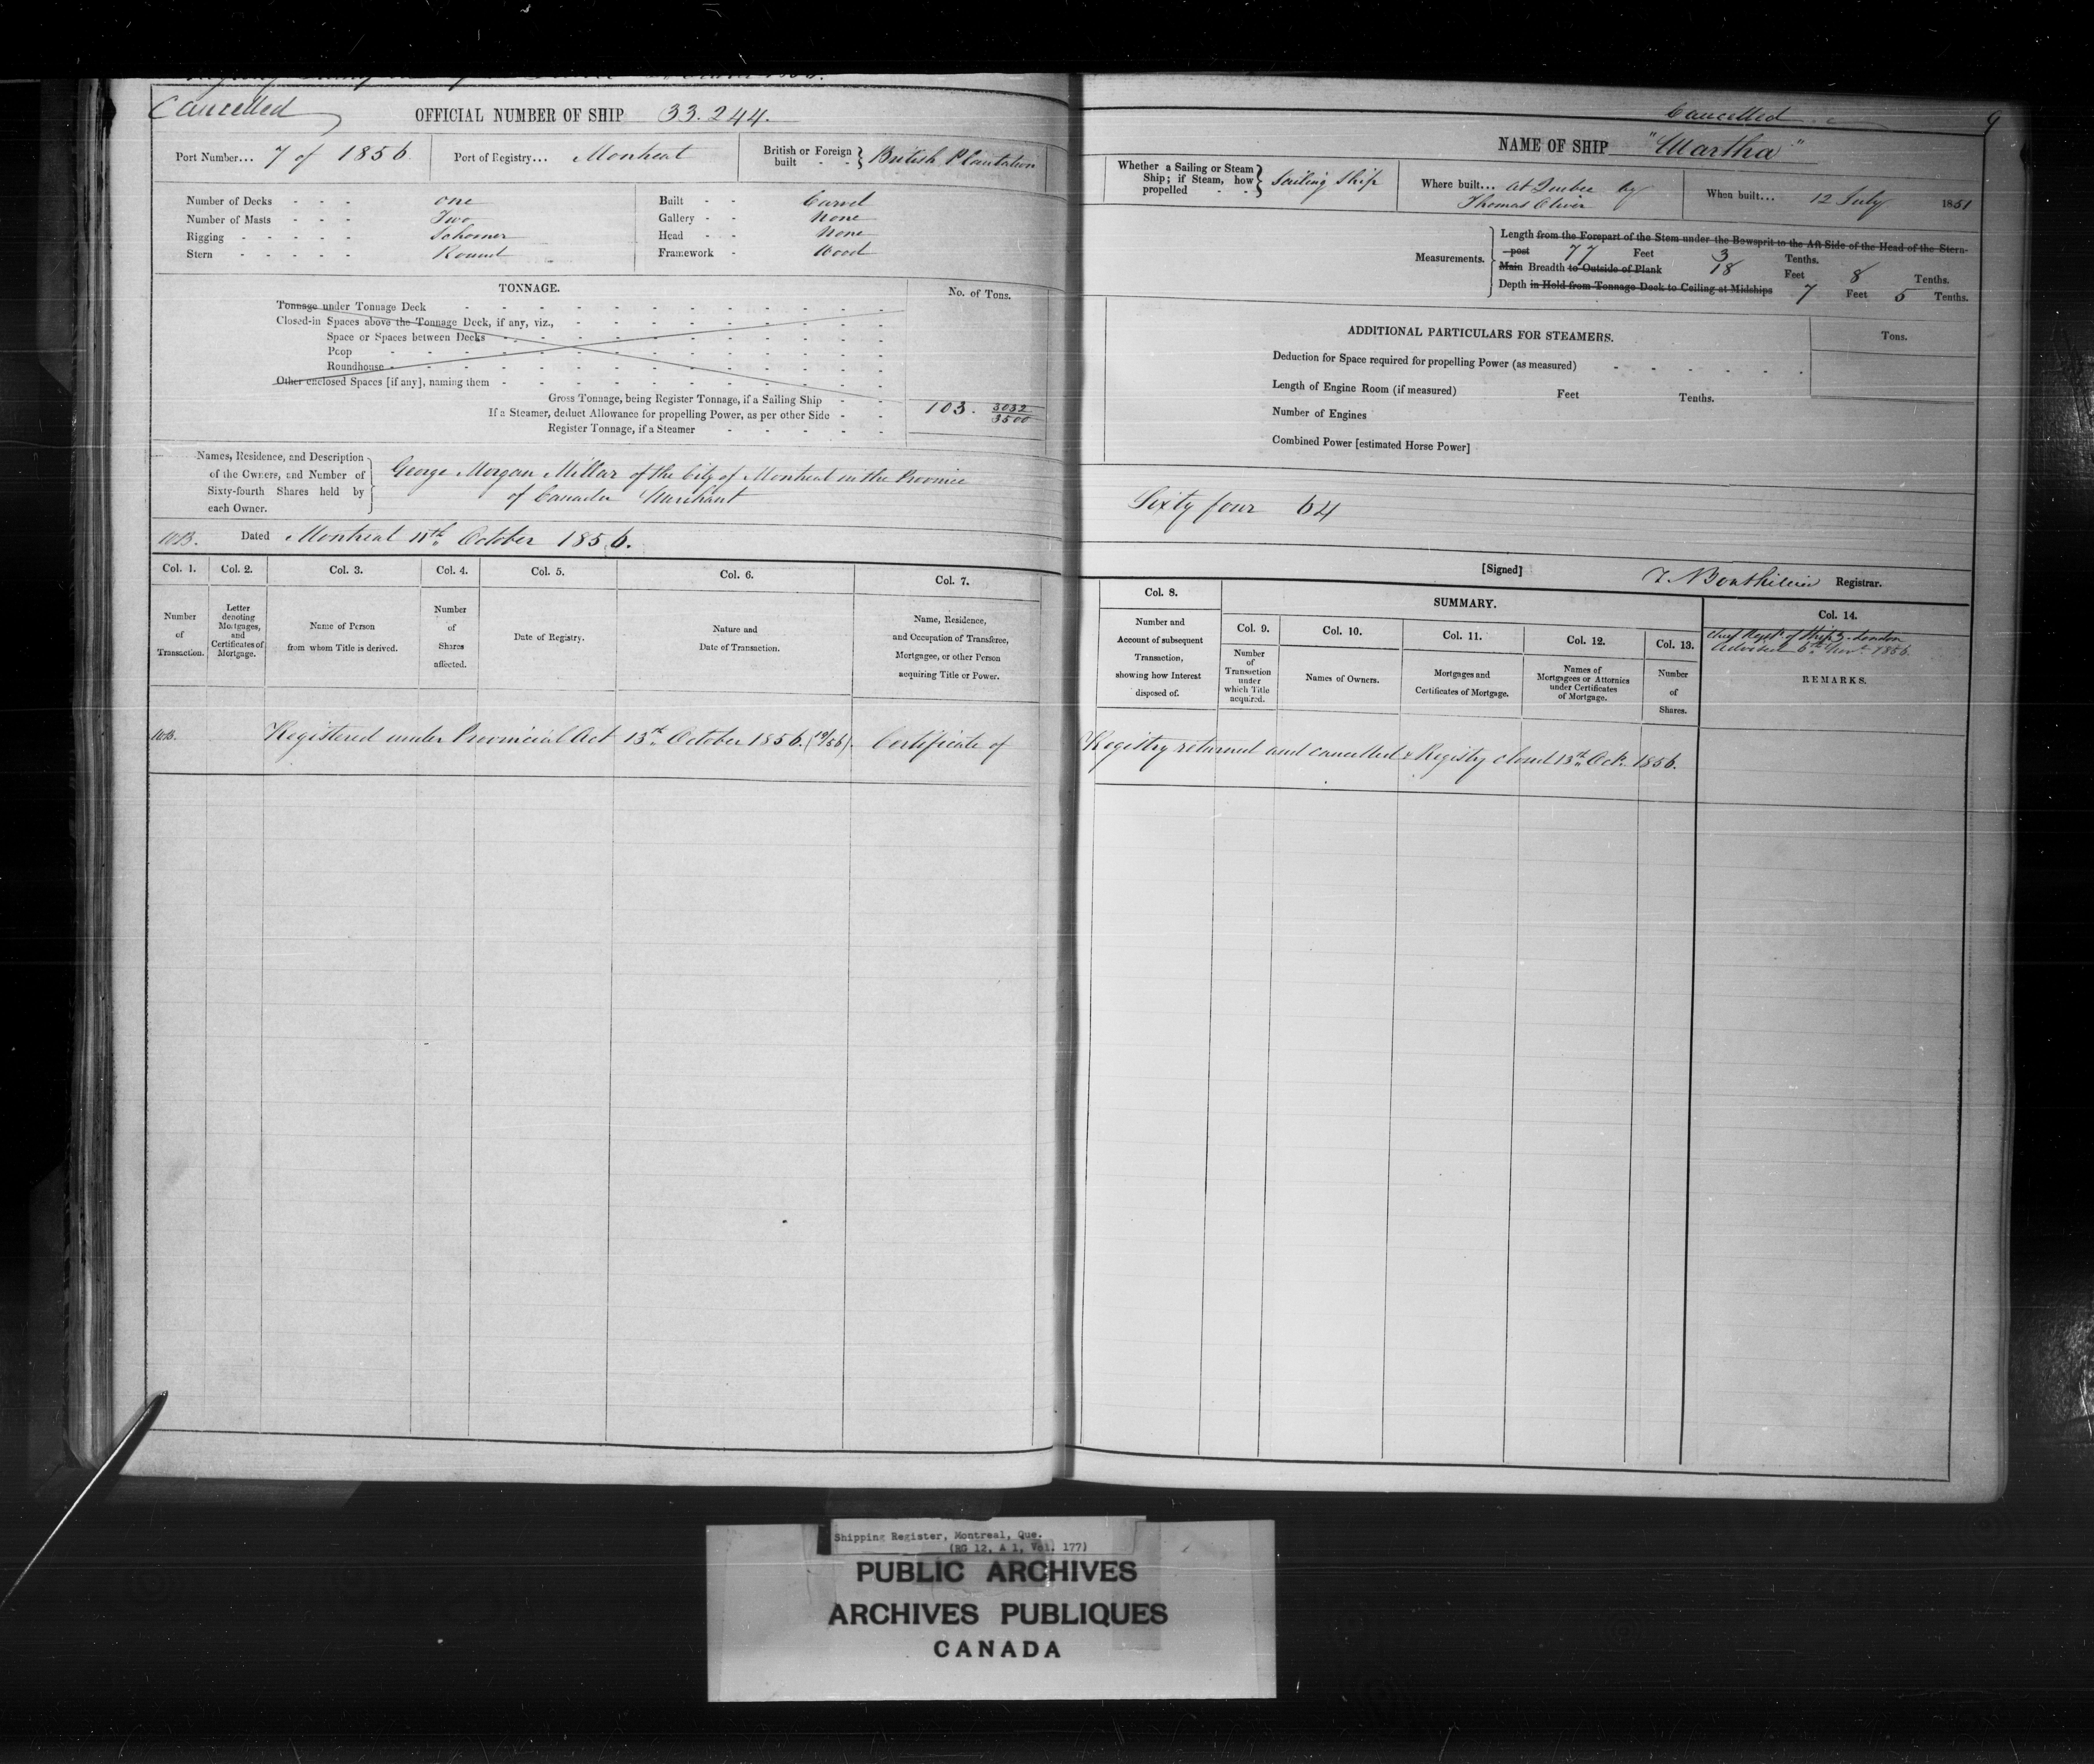 Cancelled
OFFICIAL NUMBER OF SHIP 33.244.
Port Number... 7 of 1856
Port of Registry... Montreal
British or Foreign built - - } British Plantation
Number of Decks - - - one
Number of Masts - - - Two
Rigging - - - - - Schooner
Stern - - - - - Round
Built - - Carvel
Gallery - - None
Head - - None
Framework - Wood
TONNAGE.
No. of Tons.
Tonnage under Tonnage Deck
Closed-in Spaces above the Tonnage Deck, if any, viz.,
Space or Spaces between Decks
Poop
Roundhouse
Other enclosed Spaces [if any], naming them
Gross Tonnage, being Register Tonnage, if a Sailing Ship
If a Steamer, deduct Allowance for propelling Power, as per other Side
Register Tonnage, if a Steamer
103. 3032/3500
Names, Residence, and Description
of the Owners, and Number of
Sixty-fourth Shares held by
each Owner.
George Morgan Millar of the City of Montreal in the Province
of Canada Merchant
Dated Montreal 11th October 1856.
Col. 1.
Number
of
Transaction.
Col. 2.
Letter
denoting
Mortgages,
and
Certificates of
Mortgage.
Col. 3.
Name of Person
from whom Title is derived.
Col. 4.
Number
of
Shares
affected.
Col. 5.
Date of Registry.
Col. 6.
Nature and
Date of Transaction.
Col. 7.
Name, Residence,
and Occupation of Transferee,
Mortgagee, or other Person
acquiring Title or Power.
Registered under Provincial Act 13th October 1856. (19/56). Certificate of
Cancelled
9
NAME OF SHIP "Martha"
Whether a Sailing or Steam
Ship; if Steam, how
propelled - - } Sailing Ship
Where built... at Quebec by
Thomas Oliver
When built... 12 July 1851
Measurements.
Length from the Forepart of the Stem under the Bowsprit to the Aft Side of the Head of the Stern-
post 77 Feet 3 Tenths.
Main Breadth to Outside of Plank 18 Feet 8 Tenths.
Depth in Hold from Tonnage Deck to Ceiling at Midships 7 Feet 5 Tenths.
ADDITIONAL PARTICULARS FOR STEAMERS.
Tons.
Deduction for Space required for propelling Power (as measured)
Length of Engine Room (if measured) Feet Tenths.
Number of Engines
Combined Power [estimated Horse Power]
Sixty four 64
[Signed] Registrar.
Col. 8.
Number and
Account of subsequent
Transaction,
showing how Interest
disposed of.
SUMMARY.
Col. 9.
Number
of
Transaction
under
which Title
acquired.
Col. 10.
Names of Owners.
Col. 11.
Mortgages and
Certificates of Mortgage.
Col. 12.
Names of
Mortgagees or Attornies
under Certificates
of Mortgage.
Col. 13.
Number
of
Shares.
Col. 14.
Chief Regr. of Ships London
Advised 6th Novr. 1856.
REMARKS.
Registry returned and cancelled & Registry closed 13th Oct. 1856.
Shipping Register, Montreal, Que.
(RG 12, A 1, Vol. 177)
PUBLIC ARCHIVES
ARCHIVES PUBLIQUES
CANADA